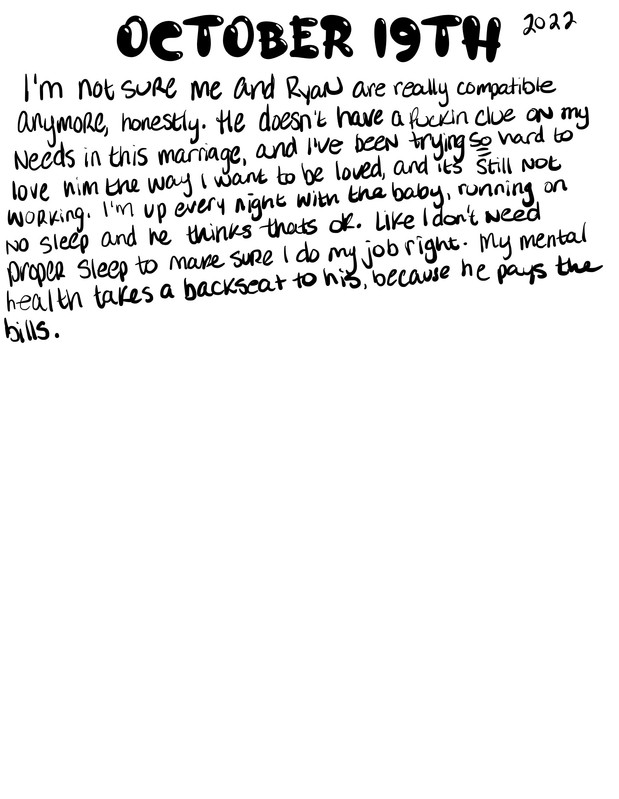 OCTOBER 19TH 2022
I'm not sure me and Ryan are really compatible
anymore, honestly. He doesn't have a fuckin clue on my
needs in this marriage, and I've been trying so hard to
love him the way I want to be loved, and its still not
working. I'm up every night with the baby, running on
no sleep and he thinks thats ok. Like I don't need
proper sleep to make sure I do my job right. My mental
health takes a backseat to his, because he pays the
bills.